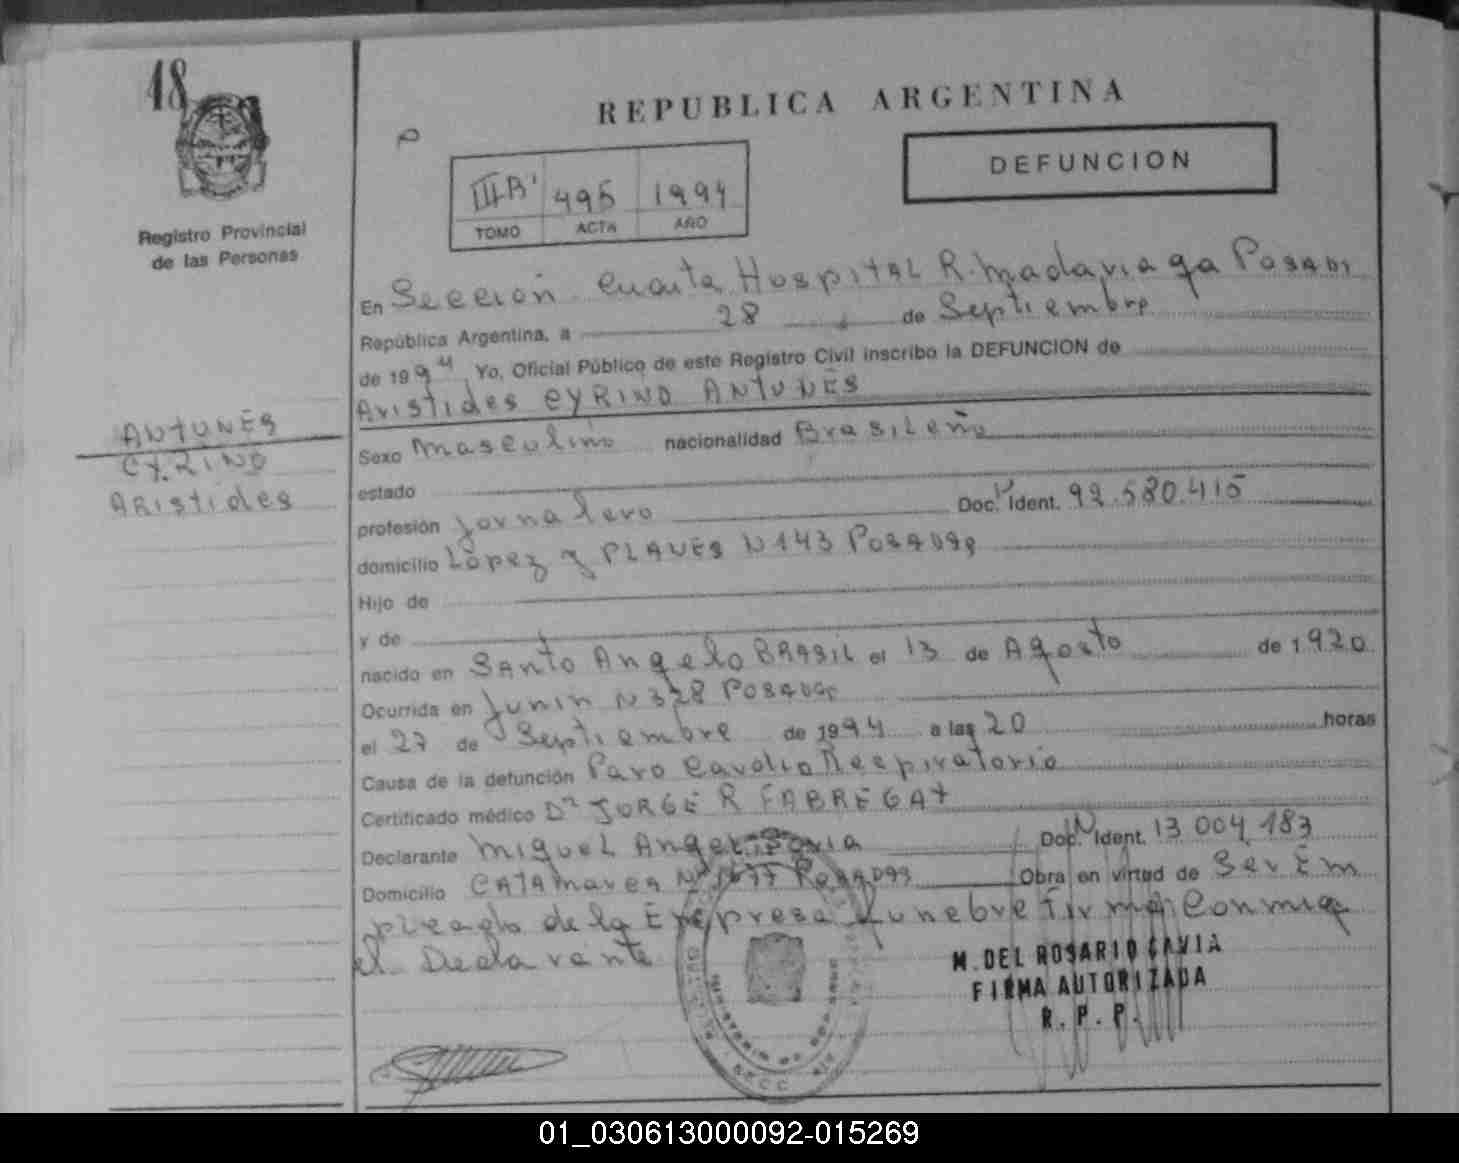 18
REPUBLICA ARGENTINA
DEFUNCION
495 1994
TOMO ACTA AÑO
Registro Provincial
de las Personas
En Sección Cuarta Hospital R. Madariaga Posads
República Argentina, a 28 de Septiembre
de 1994 Yo, Oficial Público de este Registro Civil inscribo la DEFUNCION de
Aristides CYRINO ANTUNES
ANTUNES
CYRINO
Aristides
Sexo Masculino nacionalidad Brasileño
estado
profesión Jornalero Doc. Ident. 92.580.415
domicilio López y PLANES N 143 Posadas
Hijo de
y de
nacido en SANTO Angelo BRASIL el 13 de Agosto de 1.920
Ocurrida en Junin N 328 Posadas
el 27 de Septiembre de 1994 a las 20 horas
Causa de la defunción Paro Cardio Respiratorio
Certificado médico Dr JORGE R FABREGAT
Declarante Miguel Angel Doc. Ident. 13.004.183
Domicilio CATAMARCA Nº 1677 Posadas Obra en virtud de Ser Em
pleado de la Empresa Funebre Firma Conmigo
el Declarante
M. DEL ROSARIO CAVIA
FIRMA AUTORIZADA
R. P. P.
01_030613000092-015269